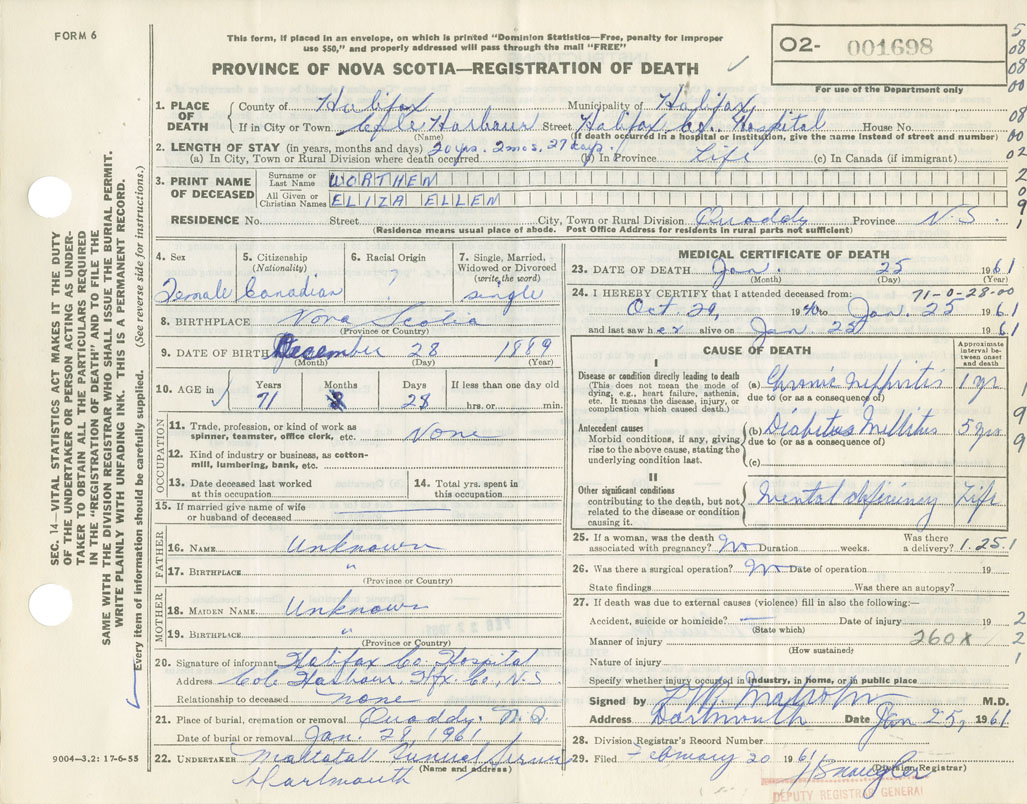 FORM 6
This form, if placed in an envelope, on which is printed "Dominion Statistics—Free, penalty for improper
use $50," and properly addressed will pass through the mail "FREE"
PROVINCE OF NOVA SCOTIA—REGISTRATION OF DEATH
02- 001698
For use of the Department only
1. PLACE OF DEATH
County of Halifax Municipality of Halifax
If in City or Town Cole Harbour Street Halifax Co. Hospital House No.
(Name) (If death occurred in a hospital or institution, give the name instead of street and number)
2. LENGTH OF STAY (in years, months and days) 20 yrs. 2 mos. 27 days.
(a) In City, Town or Rural Division where death occurred (b) In Province Life (c) In Canada (if immigrant)
3. PRINT NAME OF DECEASED
Surname or Last Name WORTHEN
All Given or Christian Names ELIZA ELLEN
RESIDENCE No. Street City, Town or Rural Division Quoddy Province N.S.
(Residence means usual place of abode. Post Office Address for residents in rural parts not sufficient)
4. Sex Female
5. Citizenship (Nationality) Canadian
6. Racial Origin ?
7. Single, Married, Widowed or Divorced (write the word) single
8. BIRTHPLACE Nova Scotia
(Province or Country)
9. DATE OF BIRTH December 28 1889
(Month) (Day) (Year)
10. AGE in Years Months Days If less than one day old
71 28 hrs. or min.
OCCUPATION
11. Trade, profession, or kind of work as spinner, teamster, office clerk, etc. None
12. Kind of industry or business, as cotton-mill, lumbering, bank, etc.
13. Date deceased last worked at this occupation
14. Total yrs. spent in this occupation
15. If married give name of wife or husband of deceased
FATHER
16. NAME Unknown
17. BIRTHPLACE "
(Province or Country)
MOTHER
18. MAIDEN NAME Unknown
19. BIRTHPLACE "
(Province or Country)
20. Signature of informant Halifax Co. Hospital
Address Cole Harbour Hfx. Co., N.S.
Relationship to deceased none
21. Place of burial, cremation or removal Quoddy.
Date of burial or removal Jan. 28, 1961
22. UNDERTAKER Mattatall Funeral Service
(Name and address)
Dartmouth
MEDICAL CERTIFICATE OF DEATH
23. DATE OF DEATH Jan. 25 1961
(Month) (Day) (Year)
24. I HEREBY CERTIFY that I attended deceased from: 71-0-28-00
Oct. 29, 1940 to Jan. 25 1961
and last saw her alive on Jan. 25 1961
CAUSE OF DEATH
Approximate interval between onset and death
I
Disease or condition directly leading to death
(This does not mean the mode of dying, e.g., heart failure, asthenia, etc. It means the disease, injury, or complication which caused death.)
(a) Chronic nephritis 1 yr
due to (or as a consequence of)
Antecedent causes
Morbid conditions, if any, giving rise to the above cause, stating the underlying condition last.
(b) Diabetus Mellitus 5 yrs
due to (or as a consequence of)
(c)
II
Other significant conditions
contributing to the death, but not related to the disease or condition causing it.
Mental deficiency Life
25. If a woman, was the death associated with pregnancy? No Duration weeks. Was there a delivery? 1.25.1
26. Was there a surgical operation? No Date of operation 19
State findings Was there an autopsy?
27. If death was due to external causes (violence) fill in also the following:—
Accident, suicide or homicide? Date of injury 19
(State which)
Manner of injury 260X
(How sustained)
Nature of injury
Specify whether injury occurred in industry, in home, or in public place
Signed by M.D.
Address Dartmouth Date Jan 25, 1961
28. Division Registrar's Record Number
29. Filed February 20 1961
(Division Registrar)
DEPUTY REGISTRAR GENERAL
9004—3.2: 17-6-55
SEC. 14—VITAL STATISTICS ACT MAKES IT THE DUTY
OF THE UNDERTAKER OR PERSON ACTING AS UNDER-
TAKER TO OBTAIN ALL THE PARTICULARS REQUIRED
IN THE "REGISTRATION OF DEATH" AND TO FILE THE
SAME WITH THE DIVISION REGISTRAR WHO SHALL ISSUE THE BURIAL PERMIT.
WRITE PLAINLY WITH UNFADING INK. THIS IS A PERMANENT RECORD.
Every item of information should be carefully supplied. (See reverse side for instructions.)
5
08
08
00
08
00
02
2
0
9
1
1
9
9
2
2
1